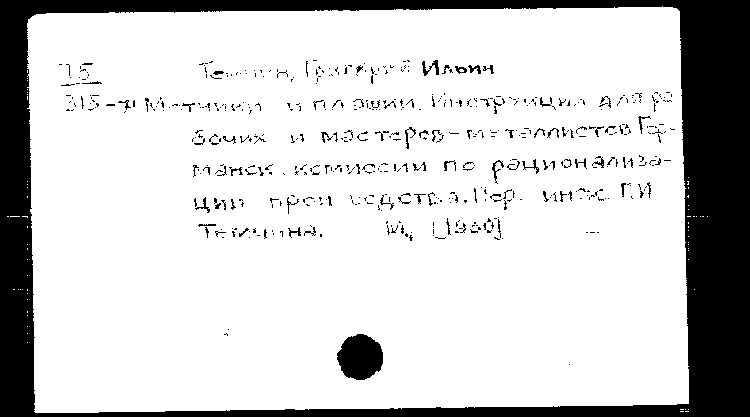 75 Темкин, Григорий Ильин
315-71 Метчики и плашки. Инструкция для ра-
бочих и мастеров-металлистов Гер-
манск. комиссии по рационализа-
ции производства. Пер. инж. Г.И
Темкина. М., [1930]